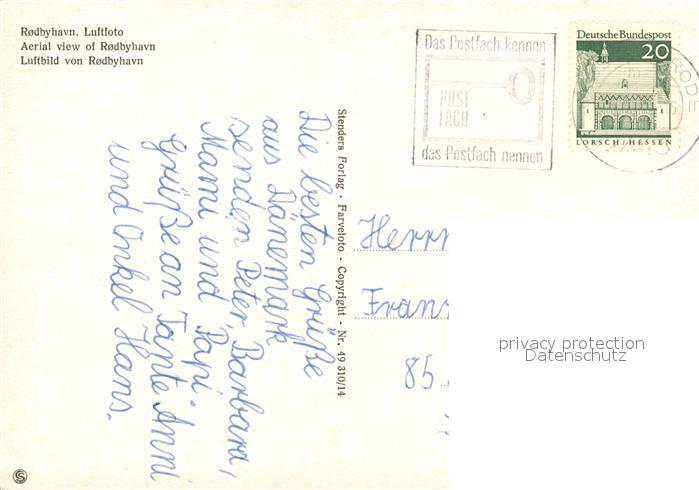 Rødbyhavn. Luftfoto
Aerial view of Rødbyhavn
Luftbild von Rødbyhavn
Das Postfach kennen
POST
FACH
das Postfach nennen
Deutsche Bundespost
20
LORSCH/HESSEN
Die besten Grüße
aus Dänemark
senden Peter, Barbara,
Mami und Papi.
Grüße an Tante Anni
und Onkel Hans.
Stenders Forlag - Farvefoto - Copyright - Nr. 49 310/14
Herrn
Franz
85
privacy protection
Datenschutz